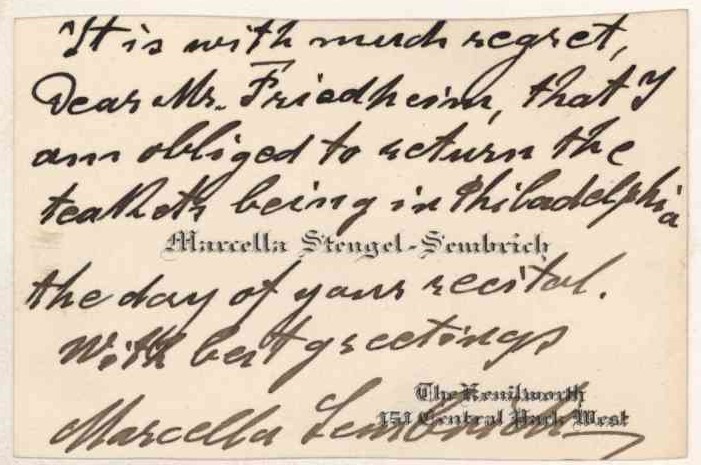 It is with much regret,
Dear Mr. Friedheim, that I
am obliged to return the
being in Philadelphia
Marcella Stengel-Sembrich
the day of your recital.
With best greetings
The Kenilworth
151 Central Park West
Marcella Sembrich